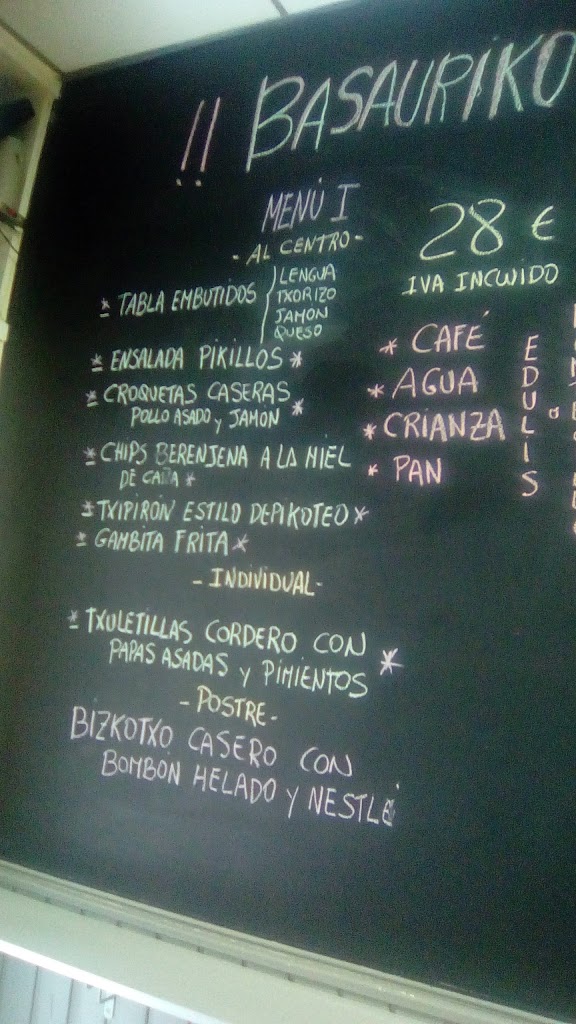 !! BASAURIKO
MENÚ I
- AL CENTRO -
* TABLA EMBUTIDOS
LENGUA
TXORIZO
JAMON
QUESO
* ENSALADA PIKILLOS *
* CROQUETAS CASERAS
POLLO ASADO y JAMON *
* CHIPS BERENJENA A LA MIEL
DE CAÑA *
* TXIPIRÓN ESTILO DEPIKOTEO *
* GAMBITA FRITA *
- INDIVIDUAL -
* TXULETILLAS CORDERO CON
PAPAS ASADAS y PIMIENTOS *
- POSTRE -
BIZKOTXO CASERO CON
BOMBÓN HELADO y NESTLÉ
28 €
IVA INCLUIDO
* CAFÉ
* AGUA
* CRIANZA
* PAN
EDULIS